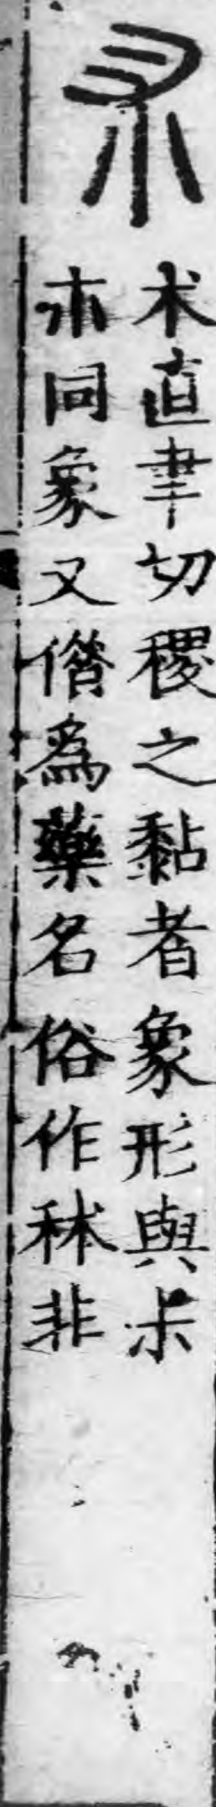 术
术直聿切稷之黏者象形與尗
朩同象又借為藥名俗作秫非